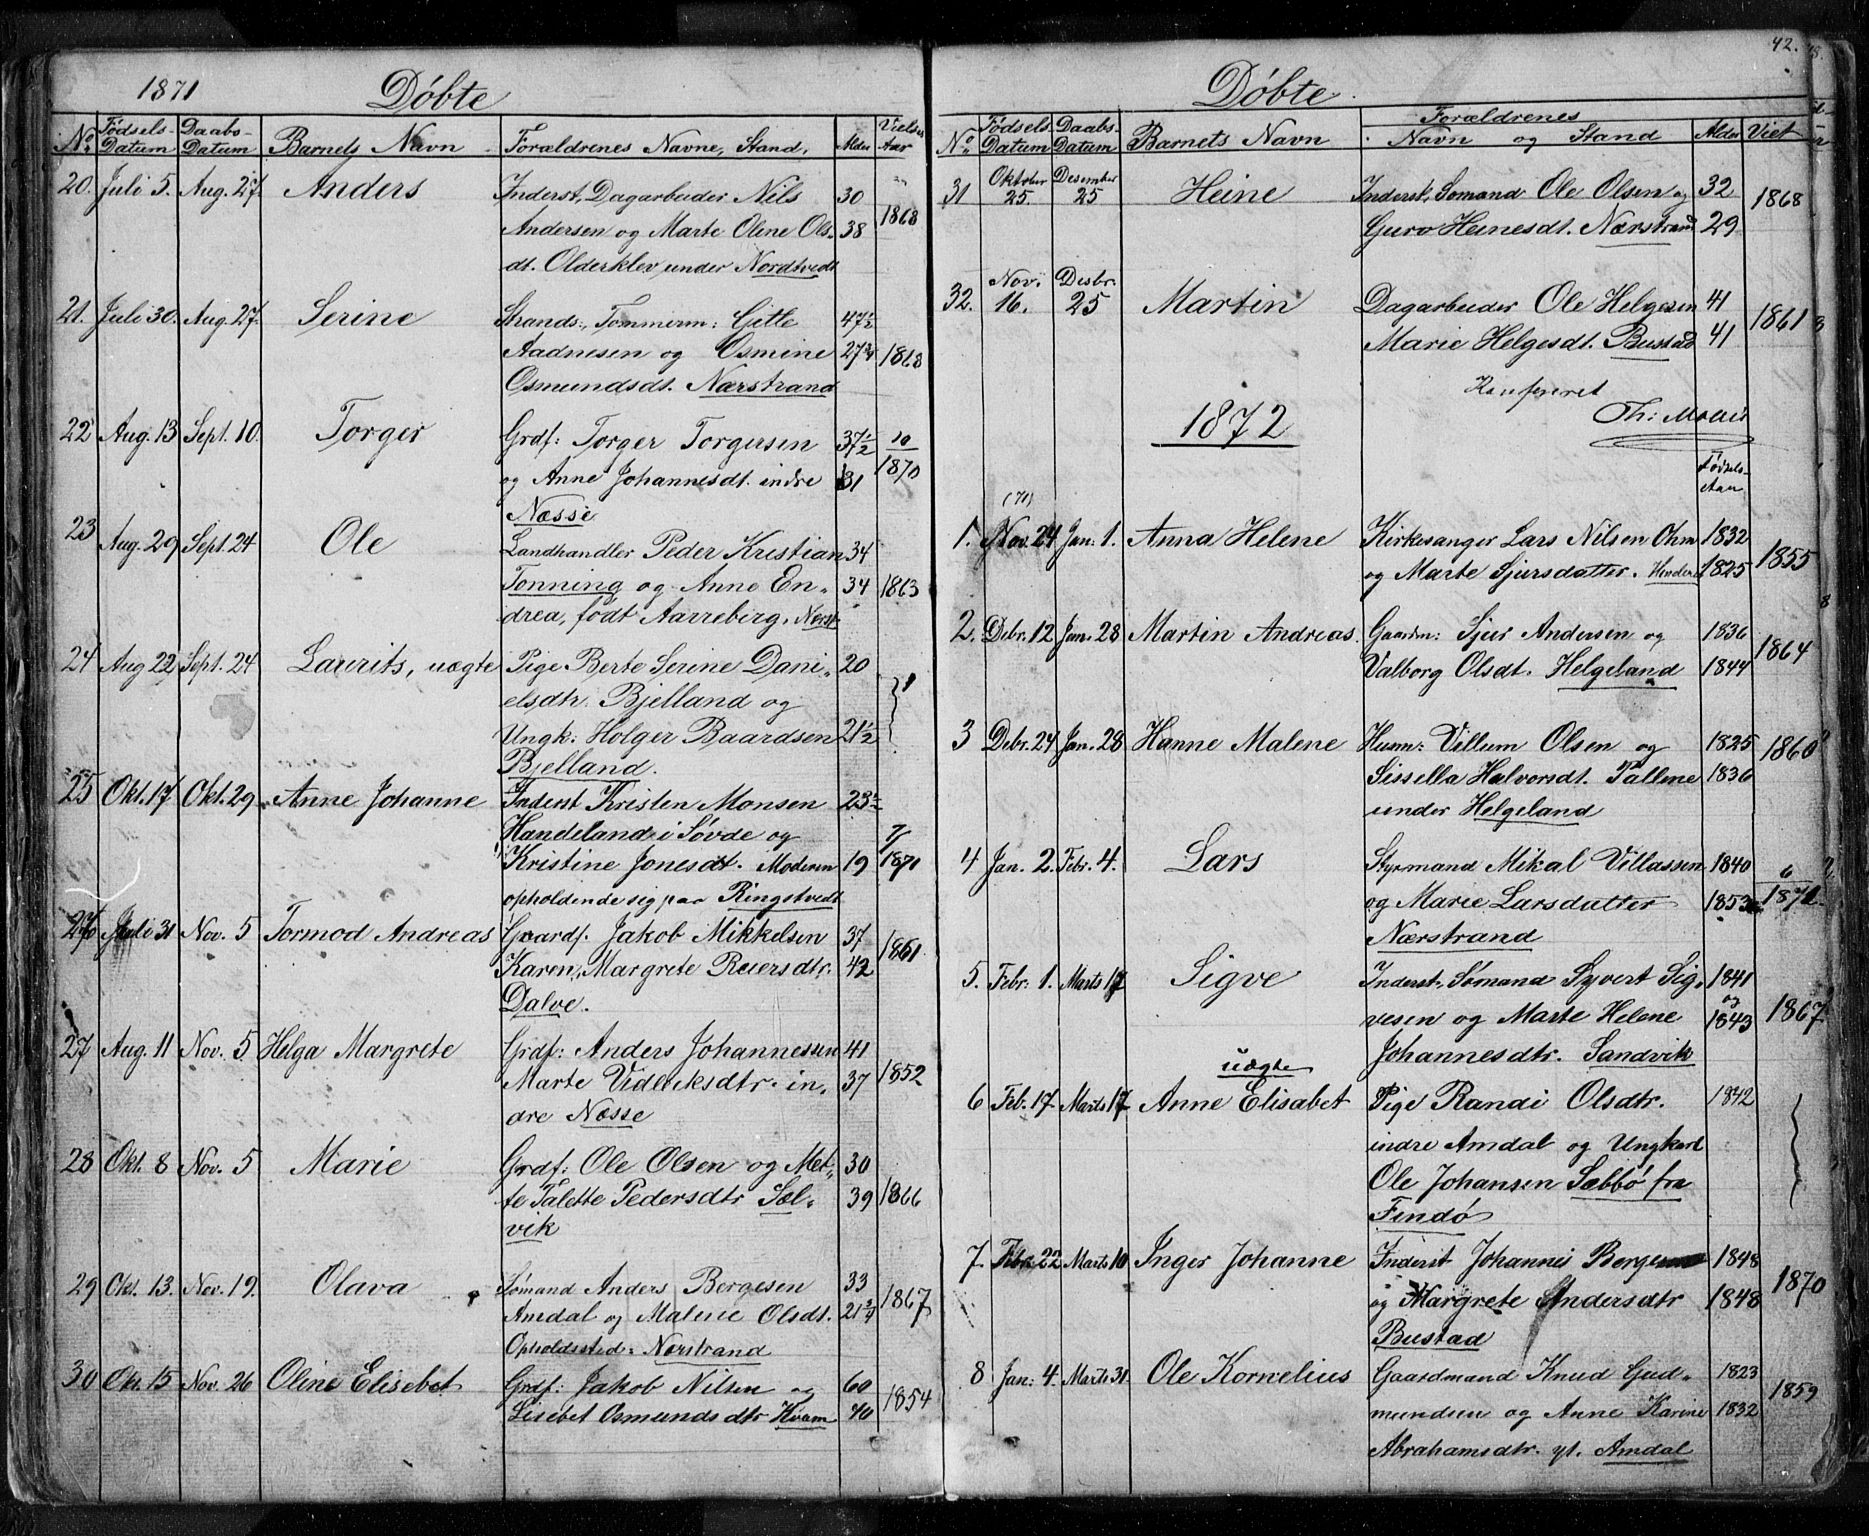 1871 Döbte
No. Födsels-Datum Daabs-Datum Barnets Navn Forældrenes Navne, Stand, Alder Vielses Aar
20. Juli 5. Aug. 27. Anders Inderst, Dagarbeider Nils 30
Andersen og Marte Oline Ols- 38 1868
dt. Olderklev under Nordtvedt
21. Juli 30. Aug. 27. Serine Strands., Tömmerm: Gitle 47½
Aadnesen og Osmine 27¾ 1868
Osmundsdt. Nærstrand
22 Aug. 13 Sept. 10. Torger Grdf: Torger Torgersen 37½ 10
og Anne Johannesdt. indre 31 1870
Næsse
23 Aug. 29 Sept. 24 Ole Landhandler Peder Kristian 34
Tonning og Anne En- 34 1863
drea, födt Aarreberg, Nærst
24 Aug 22 Sept. 24 Laurits, uægte Pige Berte Serine Dani- 20
elsdtr. Bjelland og
Ungk: Holger Baardsen 21½
Bjelland.
25 Okt. 17 Okt. 29 Anne Johanne Inderst Kristen Monsen 23½
Handeland i Søvde og 7/
Kristine Jonesdt. Moderen 19 1871
opholdende sig paa Ringstvedt
Juli 31 Nov. 5 Tormod Andreas Gaardf. Jakob Mikkelsen 37 1861
Karen Margrete Reiersdtr. 42
Dalve.
27 Aug. 11 Nov. 5 Helga Margrete Grdf: Anders Johannesen 41
Marte Vidliksdtr. in- 37 1852
dre Næsse
28 Okt. 8 Nov. 5 Marie Grdf: Ole Olsen og Met- 30
te Talette Pedersdtr Sæl- 39 1866
vik
29 Okt. 13. Nov. 19. Olava Sömand Anders Bergesen 33
Amdal og Malene Olsdt. 21¾ 1867
Opholdssted: Nærstrand
30 Okt. 15 Nov. 26 Oline Elisebet Grdf: Jakob Nilsen og 60
Lisebet Osmundsdtr Kvam 40 1854
42.
Döbte.
No. Födsels Datum Daabs-Datum Barnets Navn Forældrenes Navn og Stand Alder Viet
31 Oktober 25. Desember 25 Heine Inderst, Sömand Ole Olsen og 32 1868
Guro Heinesdt. Nærstrand 29
32. Nov. 16. Desbr. 25 Martin Dagarbeider Ole Helgesen 41 1861
Marie Helgesdt. Bustad 41
Konfereret
1872
Födsels-Aar
(71)
1. Nov. 24 Jan: 1. Anna Helene Kirkesanger Lars Nilsen Ohm 1832
og Marte Sjursdatter. 1825 1855
2. Debr. 12 Jan. 28 Martin Andreas. Gaardm: Sjur Andersen og 1836 1864
Valborg Olsdt. Helgeland 1844
3 Debr. 24 Jan. 28 Hanne Malene Husm: Villum Olsen og 1825 1860
Sissella Halvorsdt. Tallene 1836
under Helgeland
4 Jan. 2. Febr. 4. Lars Styrmand Mikal Villassen 1840 6
og Marie Larsdatter 1853 1871
Nærstrand
5. Febr. 1. Marts 17 Sigve Inderst, Sömand Syvert Sig- 1841
og
vesen og Marte Helene 1843 1867
Johannesdtr. Sandvik
uægte
6 Feb. 17 Marts 17 Anne Elisabet Pige Randi Olsdtr. 1842
indre Amdal og Ungkarl
Ole Johansen Sæbbö fra
Findö
7. Febr. 22 Marts 10 Inger Johanne Inderst Johannes Bergesen 1848
og Margrete Andersdtr 1848 1870
Bustad
8 Jan: 4. Marts 31 Ole Kornelius Gaardmand Knud Gud- 1823 1859
mundsen og Anne Karine 1832
Abrahamsdtr. yt. Amdal